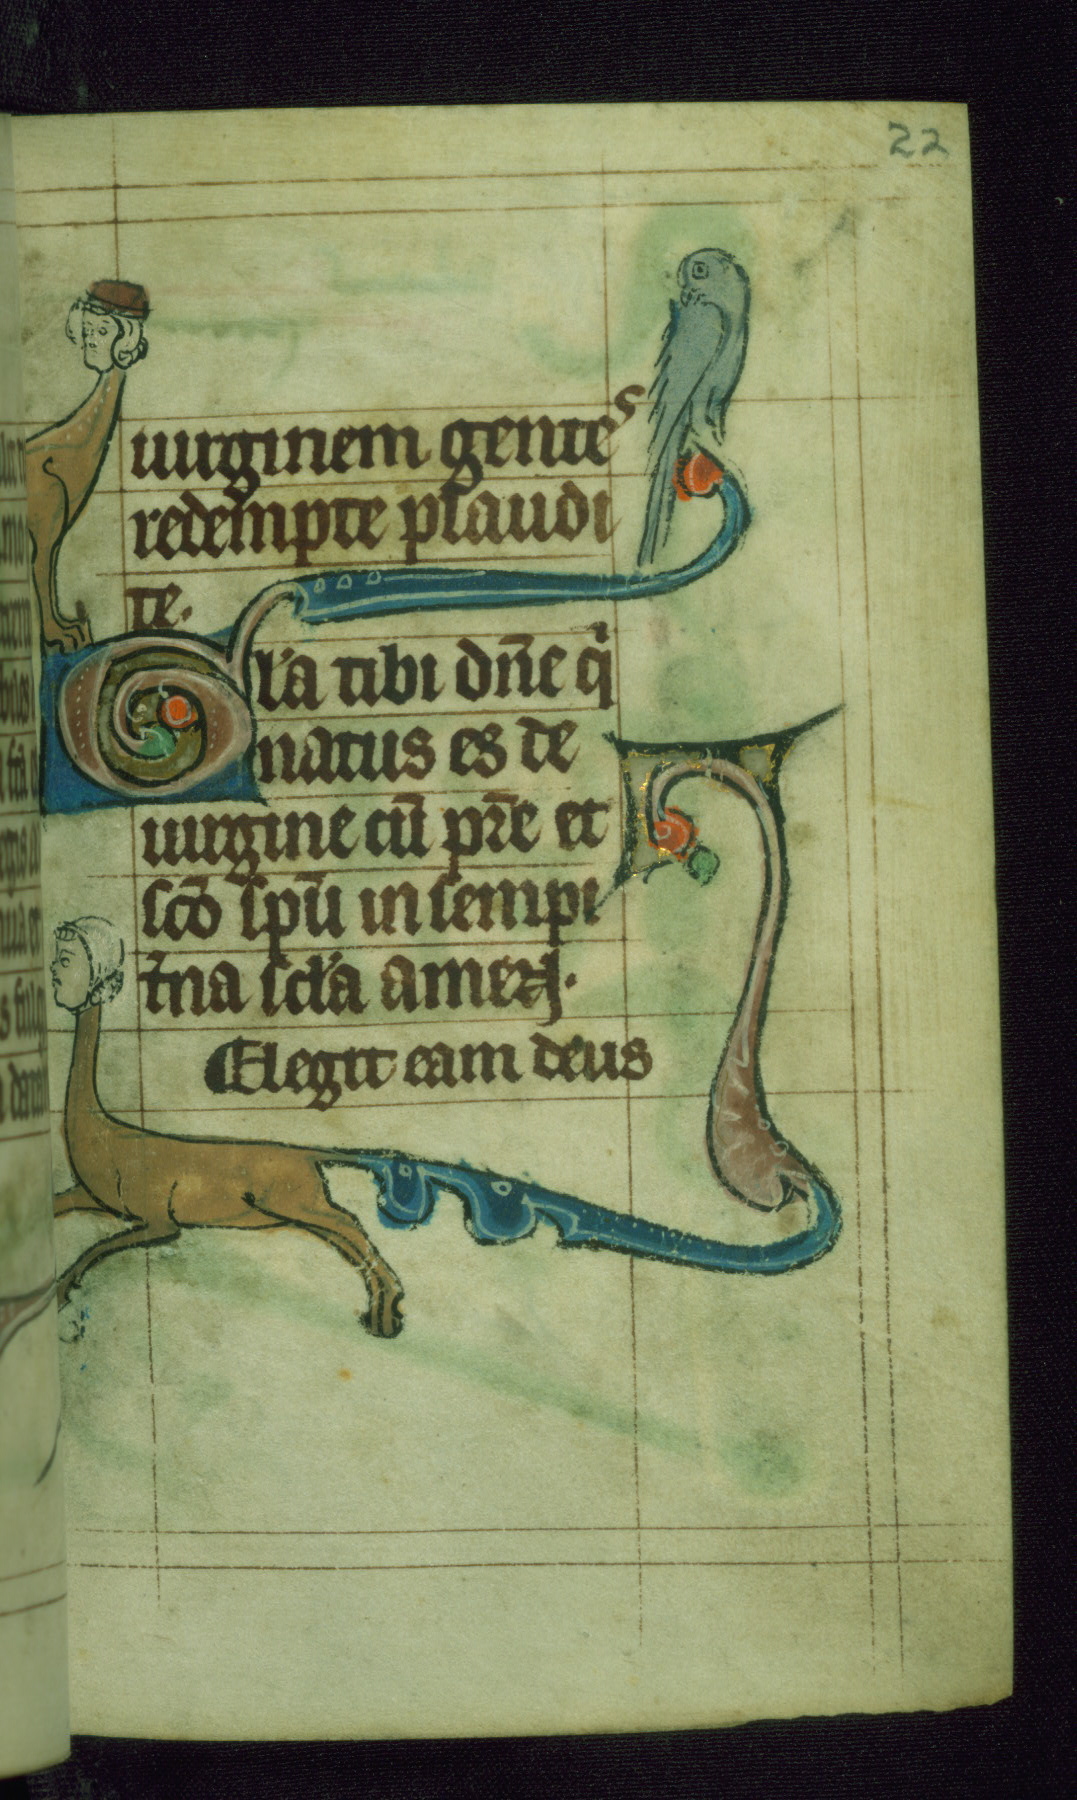 22
uirginem gentes
redempte plaudi
te.
Gl'a tibi dn̄e q̇
natus es de
uirgine cū pr̄e et
sc̄o spū in sempi
t̄na scl'a amen.
Elegit eam deus